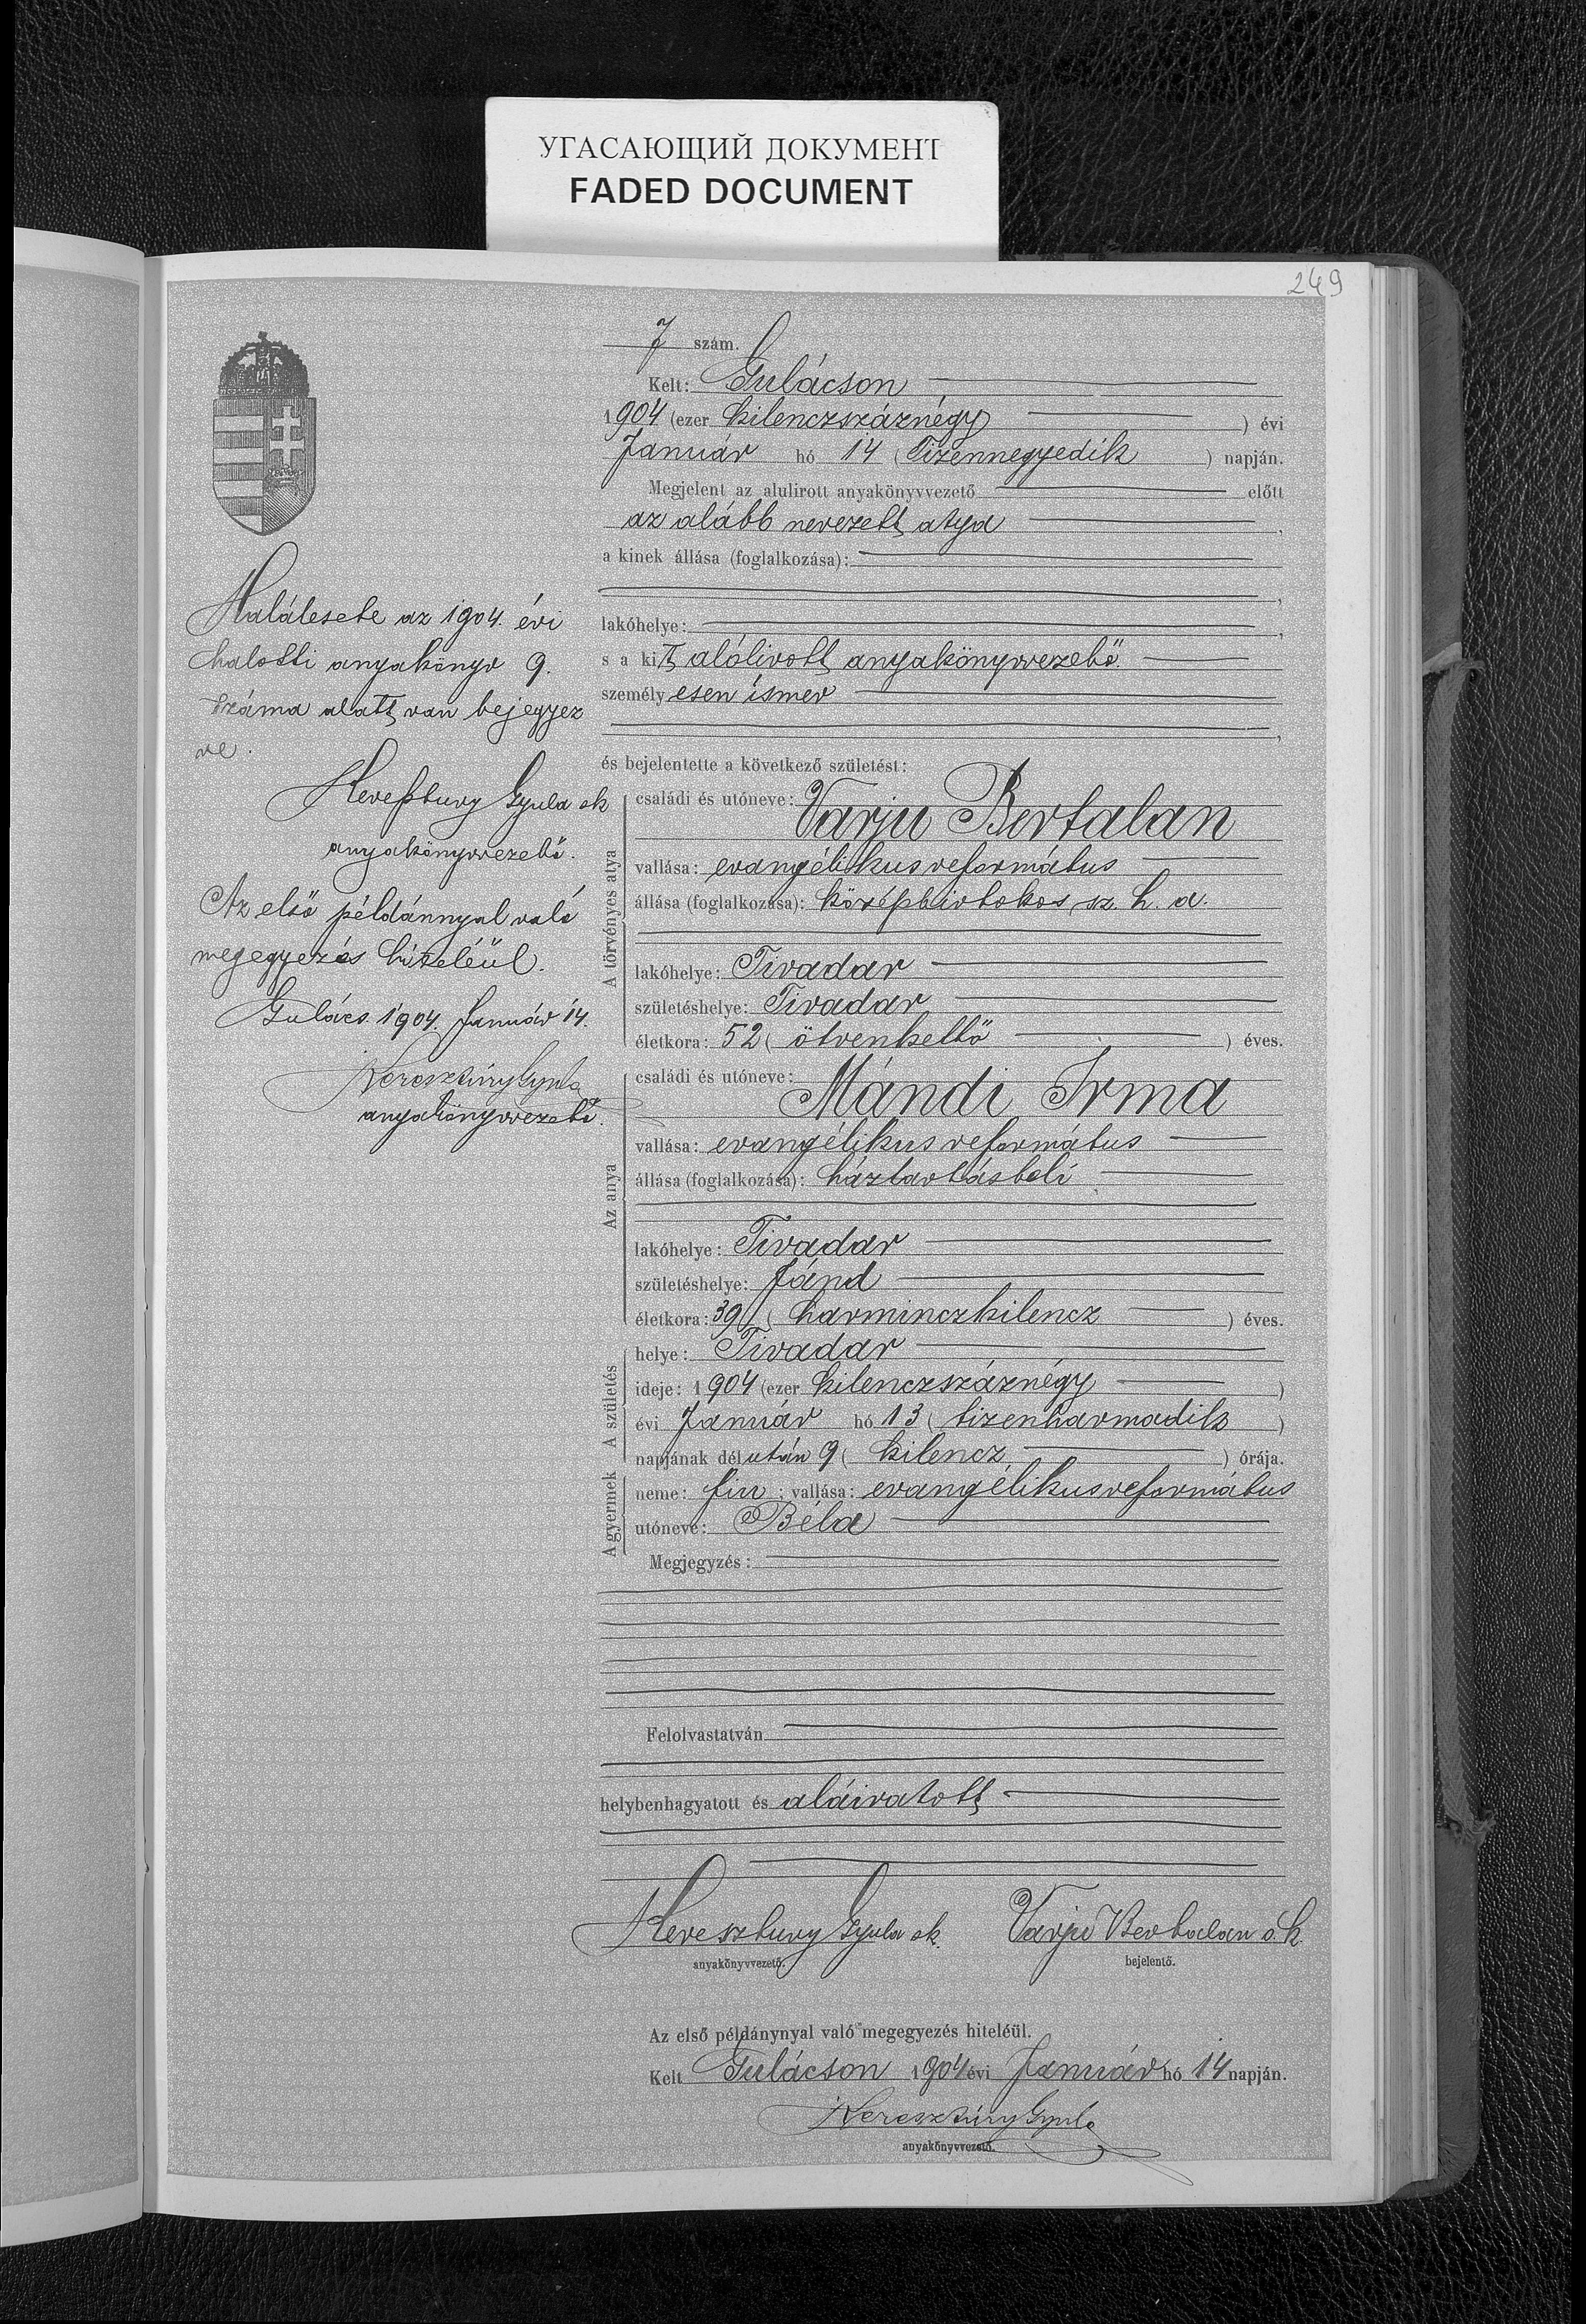 УГАСАЮЩИЙ ДОКУМЕНТ
FADED DOCUMENT
249
7 szám.
Kelt: Gulácson
1904 (ezer kilenczszáznégy) évi
Január hó 14 (Tizennegyedik) napján.
Megjelent az alulirott anyakönyvvezető előtt
az alább nevezett atya,
a kinek állása (foglalkozása):
lakóhelye:
s a kit alólirott anyakönyvvezető
személyesen ismer
és bejelentette a következő születést:
Halálesete az 1904. évi
halotti anyakönyv 9.
száma alatt van bejegyez
ve.
Keresztury Gyula sk
anyakönyvvezető.
Az első példánnyal való
megegyezés hiteléül.
Gulács 1904. Január 14.
Keresztúry Gyula
anyakönyvvezető.
A törvényes atya
családi és utóneve: Varju Bertalan
vallása: evangélikus református
állása (foglalkozása): középbirtokos, sz. h. a.
lakóhelye: Tivadar
születéshelye: Tivadar
életkora: 52 (ötvenkettő) éves.
Az anya
családi és utóneve: Mándi Irma
vallása: evangélikus református
állása (foglalkozása): háztartásbeli
lakóhelye: Tivadar
születéshelye: Jánd
életkora: 39 (harminczkilencz) éves.
A születés
helye: Tivadar
ideje: 1904 (ezer kilenczszáznégy)
évi Január hó 13 (tizenharmadik)
napjának délután 9 (kilencz) órája.
A gyermek
neme: fiu; vallása: evangélikus református
utóneve: Béla
Megjegyzés:
Felolvastatván
helybenhagyatott és aláiratott
Keresztury Gyula sk. Varju Bertalan s.k.
anyakönyvvezető. bejelentő.
Az első példánynyal való megegyezés hiteléül.
Kelt Gulácson 1904 évi Január hó 14 napján.
Keresztúry Gyula
anyakönyvvezető.